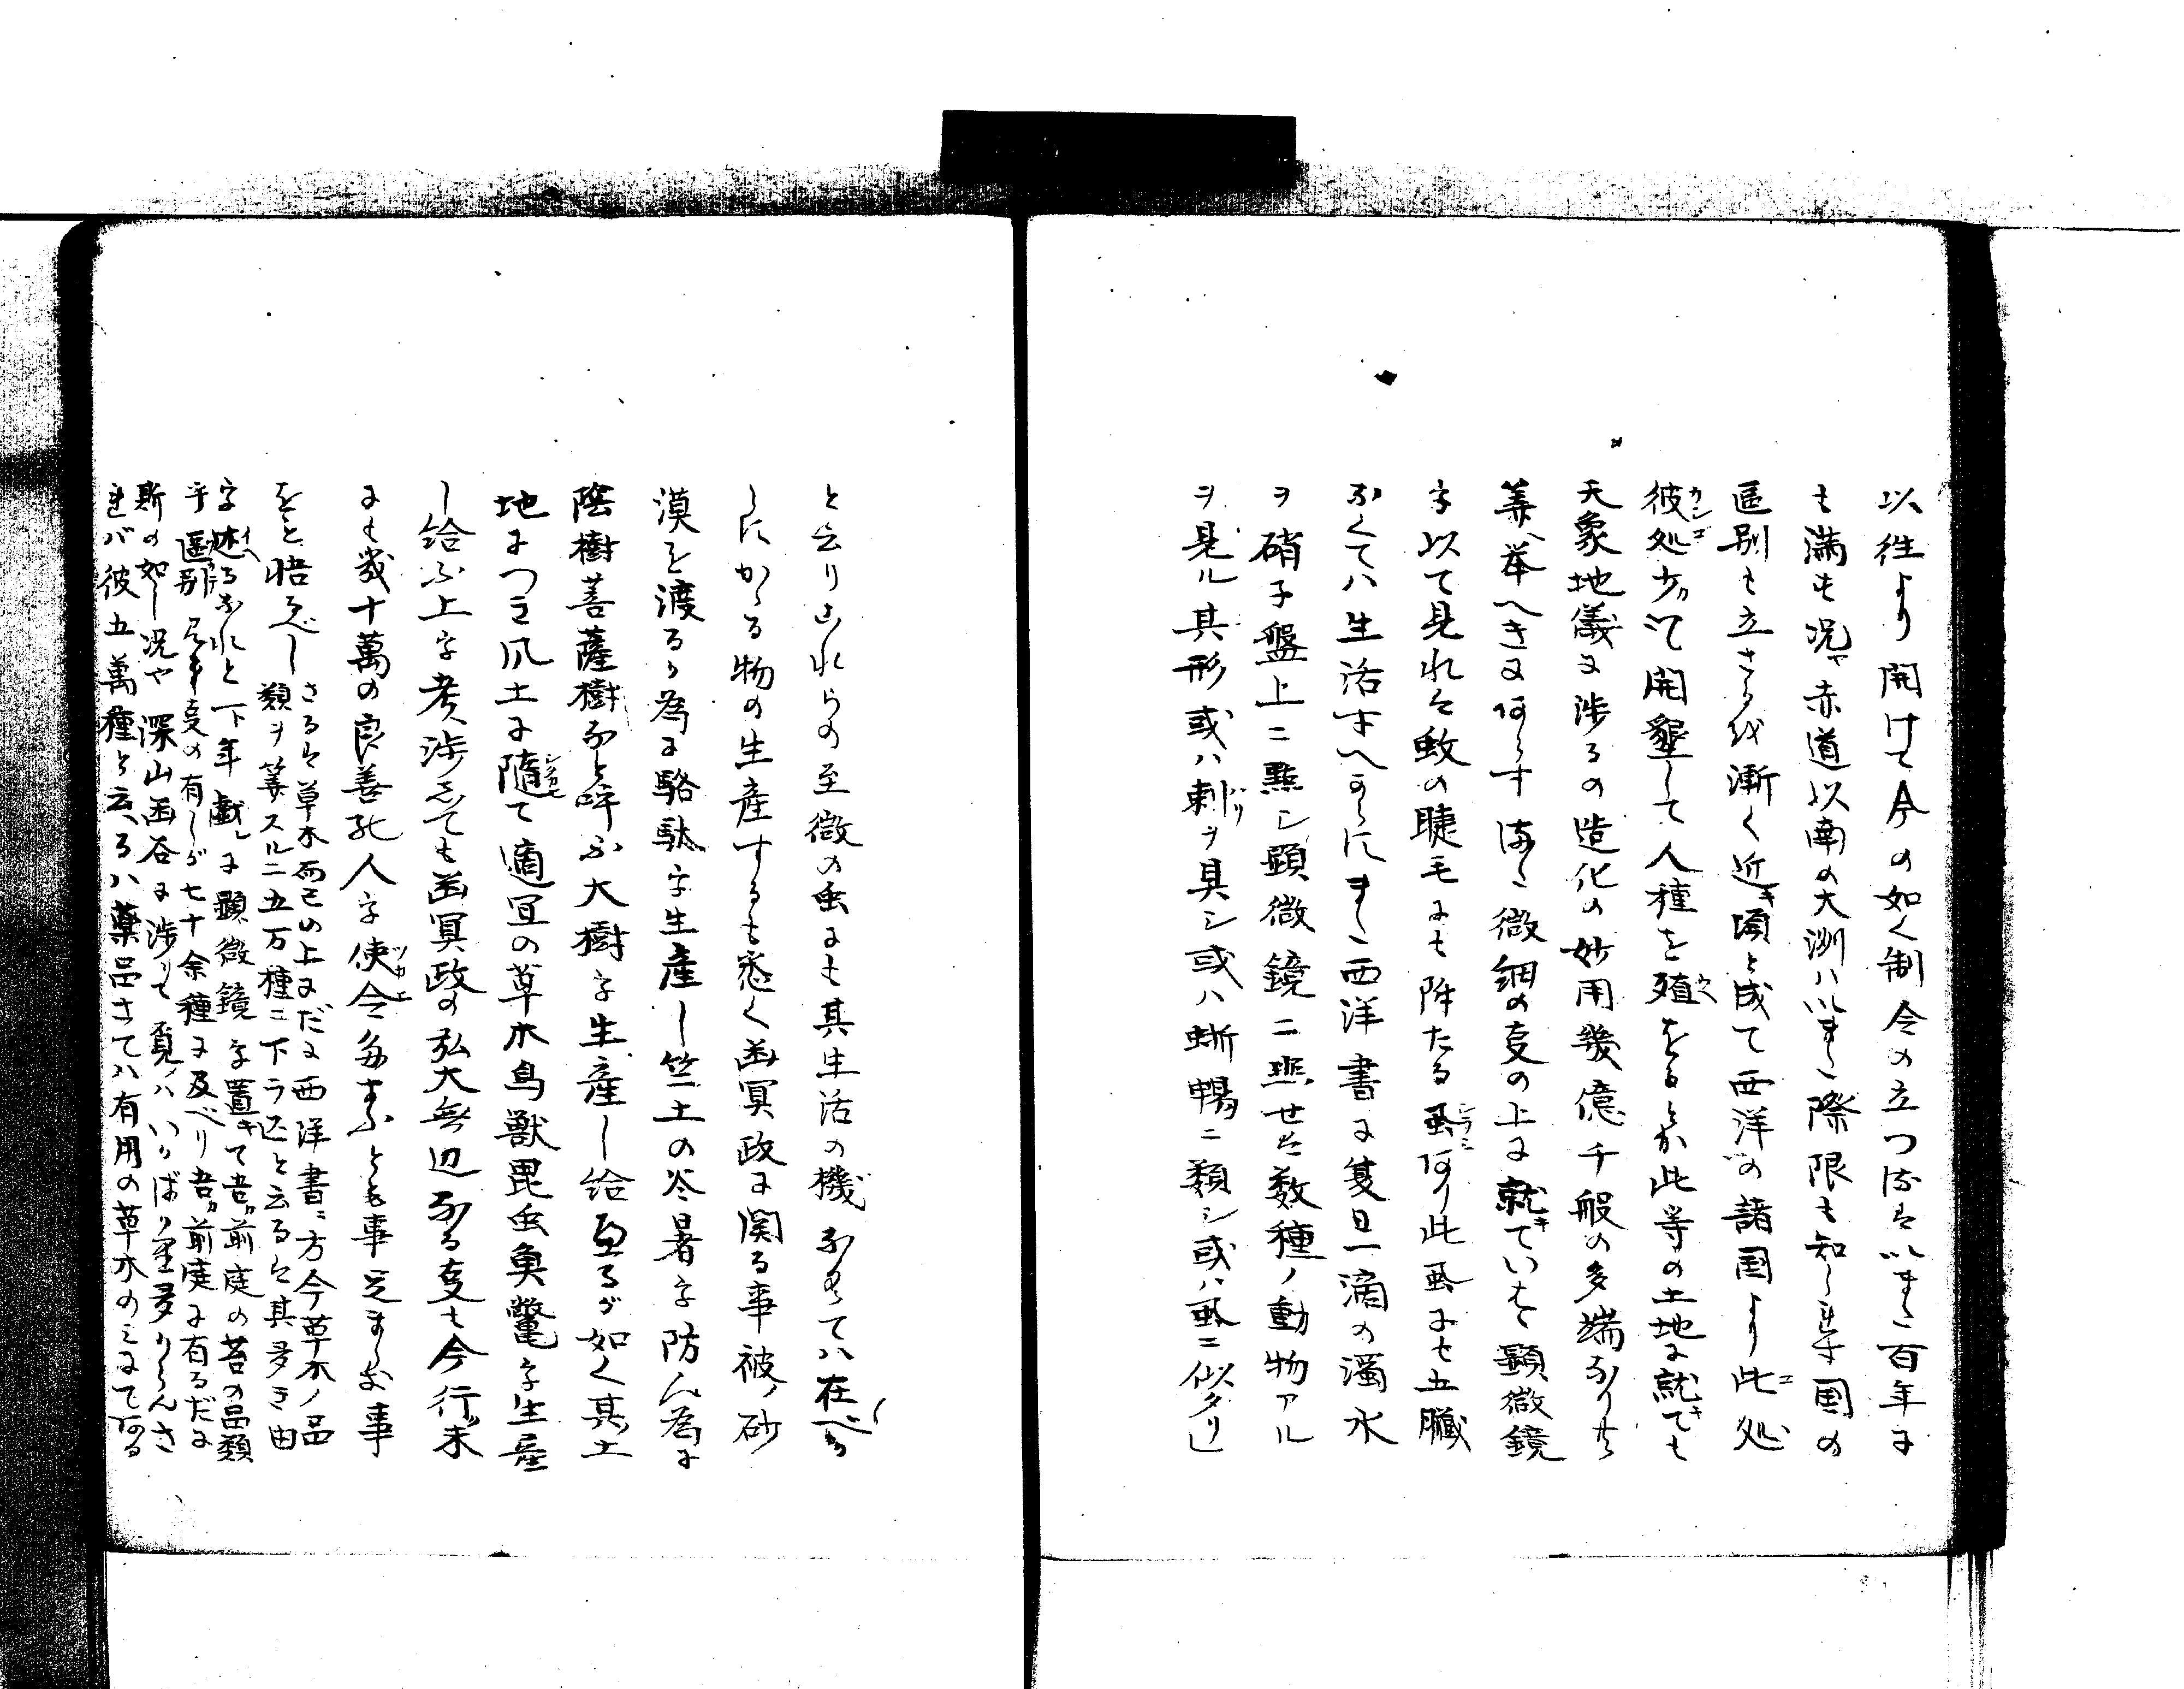 以往より開けて今の如く制令の立つ流はいまた百年に
も満す況や赤道以南の大洲ハいまた際限も知られす国の
區別も立さるを漸く近き頃と成て西洋の諸国より此処
彼処かつて開墾して人種を殖をるとか此等の土地に就ても
天象地儀に渉るの造化の妙用幾億千般の多端なりや
筭へ挙へきに何らす 微細の支の上に就ていはゝ顕微鏡
を以て見れは蚊の睫毛にも陣たる虱何り此虱にも五臓
なくてハ生活すへからすまた西洋書に夏日一滴の濁水
ヲ硝子盤上ニ點シ顕微鏡ニ照セは数種ノ動物アル
ヲ見ル其形或ハ刺ヲ具シ或ハ蜥蜴ニ類シ或ハ虱ニ似タリ
と云りこれらの至微の虫にも其生活の機なくてハ在べ
しにかゝる物の生産するも悉く幽冥政に関る事彼ノ砂
漠を渡るか為に駱駄を生産し竺土の冷暑を防ん為に
陰樹菩薩樹なと呼ふ大樹を生産し給ひるが如く其土
地につき風土に隨て適宜の草木鳥獣毘虫魚鼈を生産
し給ふ上を考渉しても幽冥政の弘大無辺なる支も今行末
にも幾十萬の良善死人を使令給ふとも事足ましき事
をと悟るべし
さるは草木而已の上にだに西洋書ニ方今草木ノ品
類ヲ筭スルニ五万種ニ下ラズと云るは其多き由
を述るなれと一下年戯レに顕微鏡を置きて吾前庭の苔の品類
を區別 支の有しが七十余種に及べり吾前庭に有るだに
斯の如し況や深山幽谷に渉りて覓ハいかばかり多からんさ
れバ彼五萬種と云るハ薬品さてハ有用の草木のみにて何る